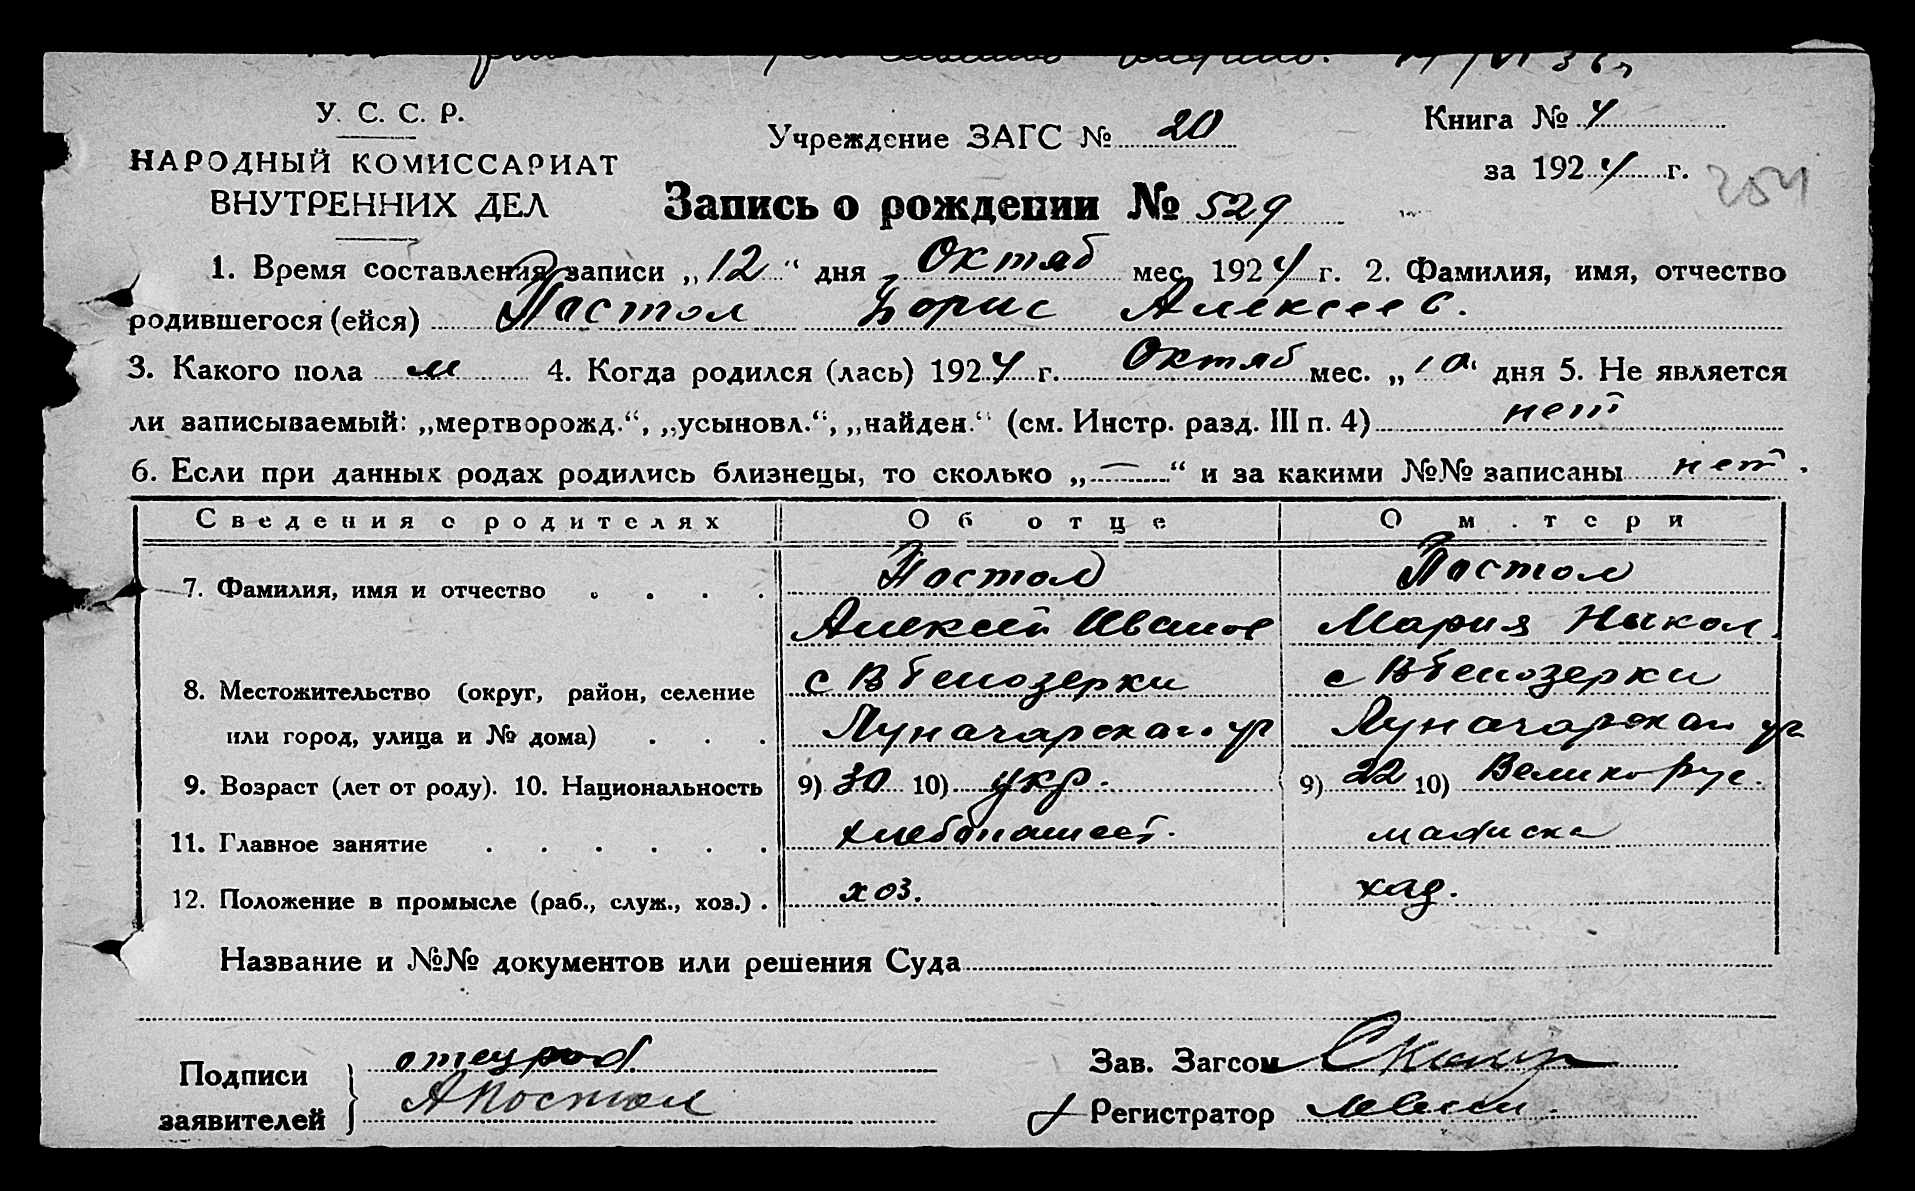 У. С. С. Р.
НАРОДНЫЙ КОМИССАРИАТ
ВНУТРЕННИХ ДЕЛ
Учреждение ЗАГС № 20
Книга № 4
за 1924 г. 254
Запись о рождении № 529
1. Время составления записи „12“ дня Октяб мес. 1924 г. 2. Фамилия, имя, отчество
родившегося (ейся) Постол Борис Алексеев.
3. Какого пола м 4. Когда родился (лась) 1924 г. Октяб мес. „10“ дня 5. Не является
ли записываемый: „мертворожд.“, „усыновл.“, „найден.“ (см. Инстр. разд. III п. 4) нет
6. Если при данных родах родились близнецы, то сколько „—“ и за какими №№ записаны нет.
Сведения о родителях Об отце О м.тери
7. Фамилия, имя и отчество . . . . Постол Постол
Алексей Иванов Мария Никол.
8. Местожительство (округ, район, селение с В Белозерки с В Белозерки
или город, улица и № дома) . . . Луначарская ул Луначарская ул
9. Возраст (лет от роду). 10. Национальность 9) 30 10) укр. 9) 22 10) Великорус.
11. Главное занятие . . . . . . хлебопашест.
12. Положение в промысле (раб., служ., хоз.) . хоз.
Название и №№ документов или решения Суда
Подписи
заявителей
отец
АПостол
Зав. Загсом
Регистратор